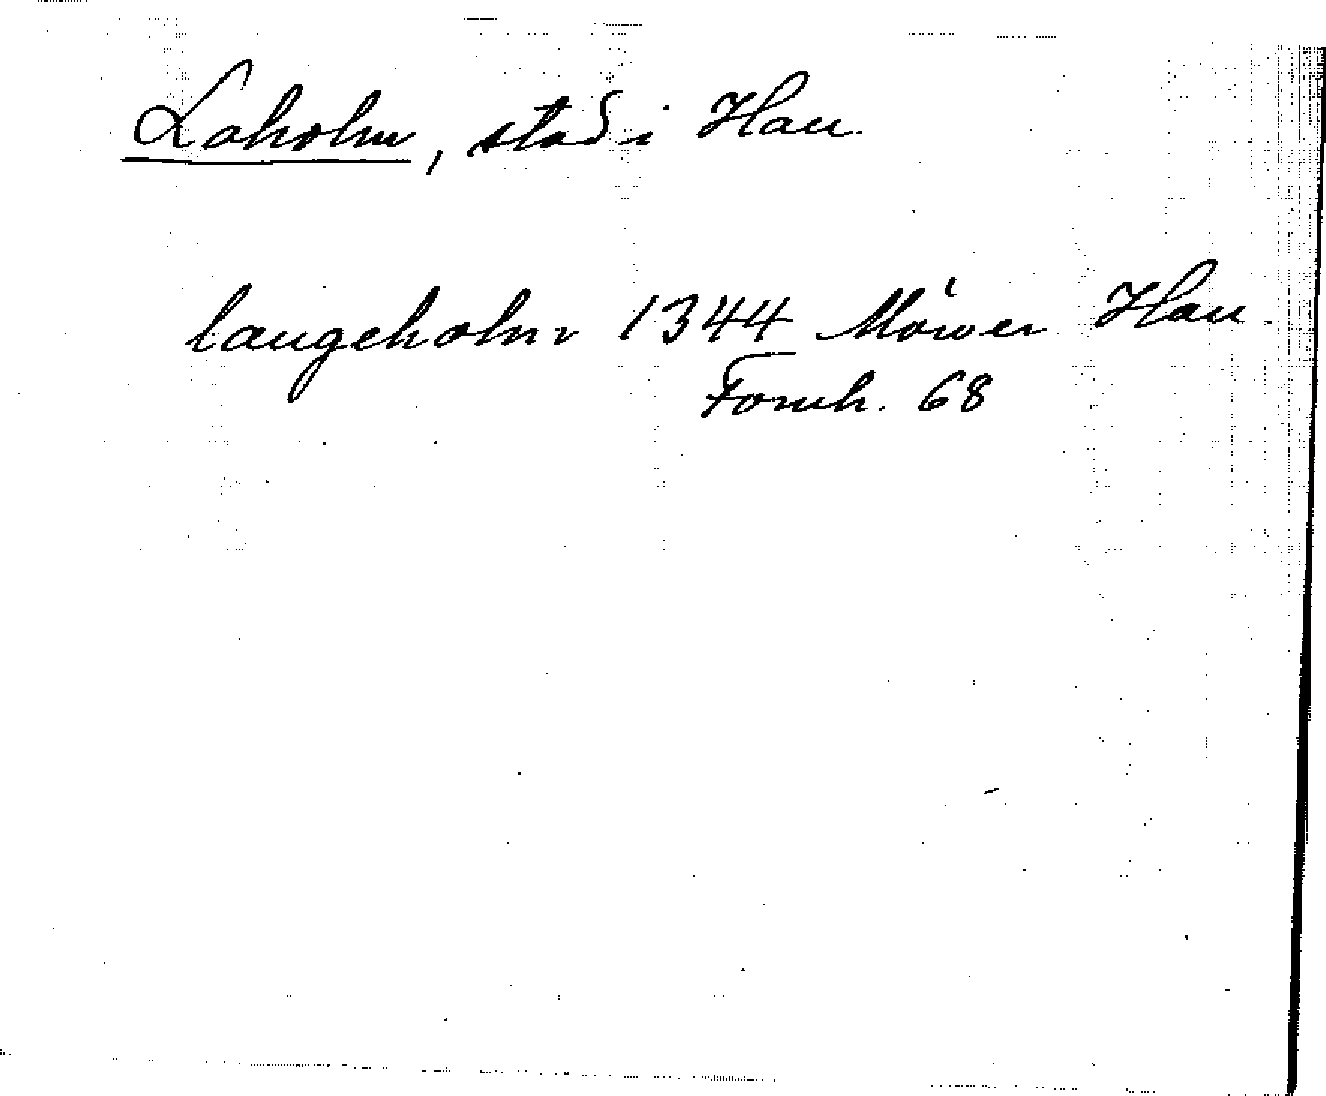 Laholm, stad i Han
langeholm 1344 Möwer Han
Fornh. 68